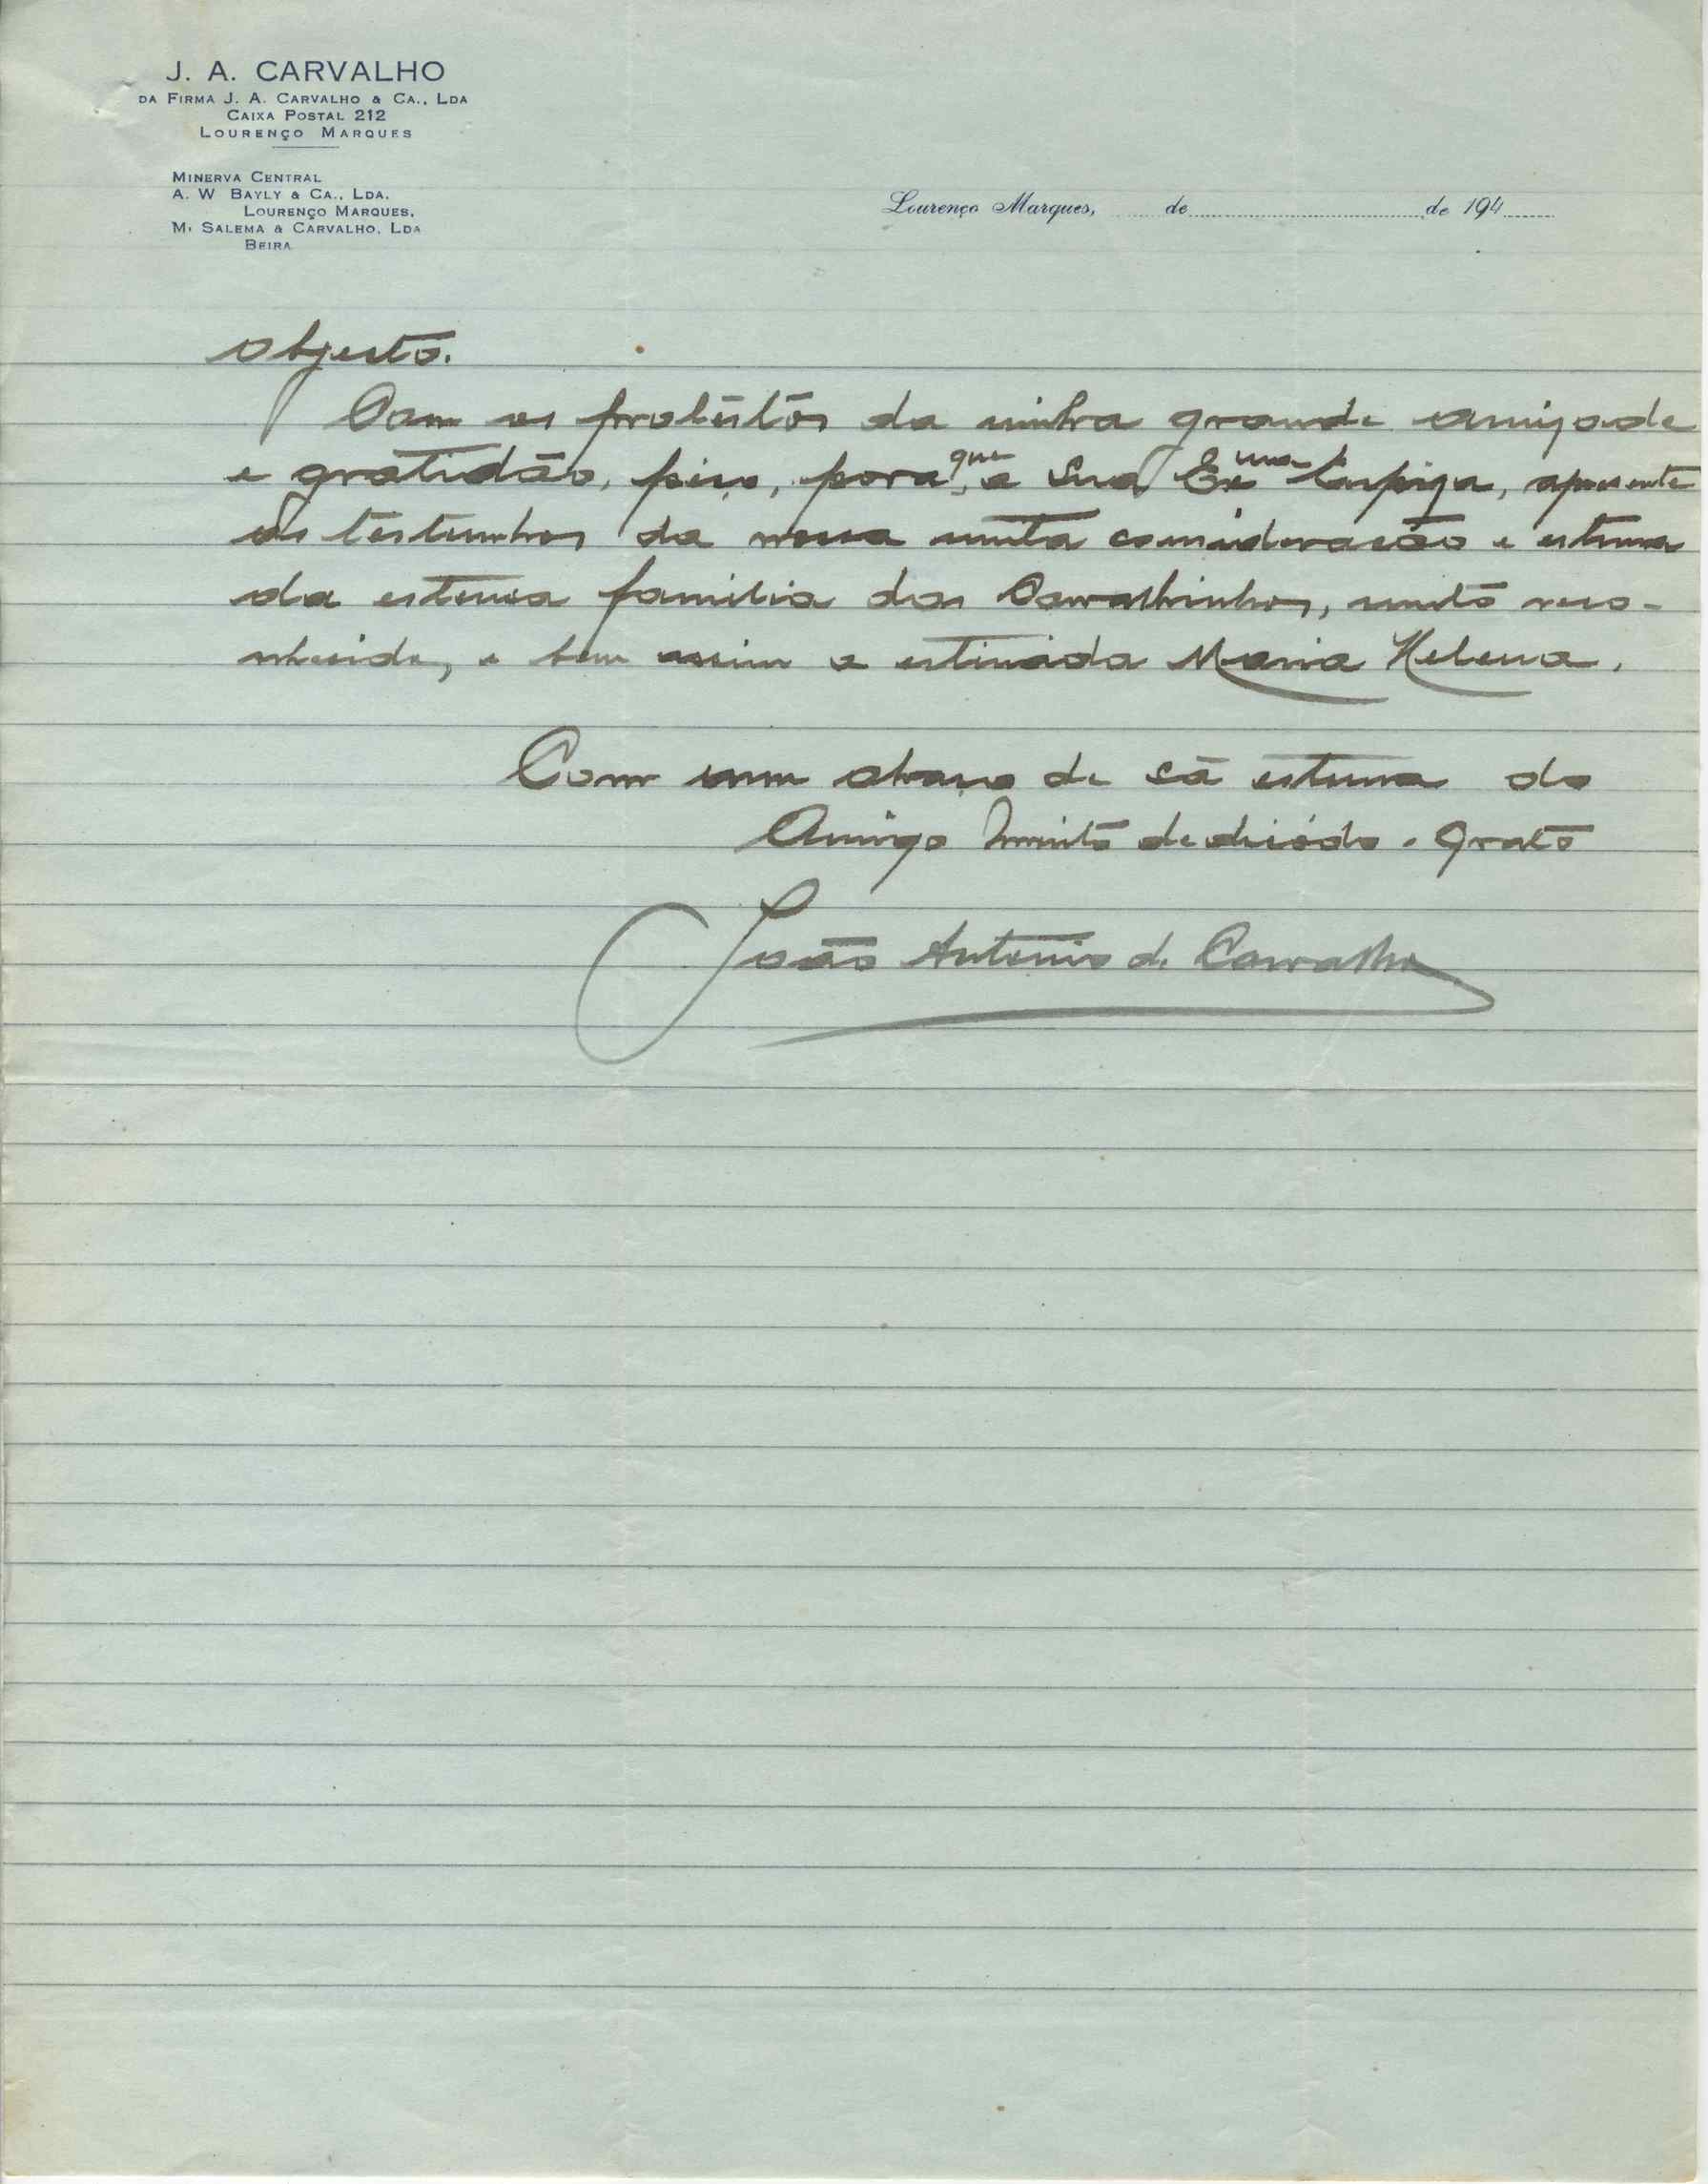 J. A. CARVALHO
DA FIRMA J. A. CARVALHO & CA., LDA
CAIXA POSTAL 212
LOURENÇO MARQUES
MINERVA CENTRAL
A. W BAYLY & CA., LDA.
LOURENÇO MARQUES.
M. SALEMA & CARVALHO, LDA
BEIRA
Lourenço Marques, de de 194
objecto.
Com os protéstos da minha grande amizade
e gratidão, peço, para que, a Sua Exma Espoza, apresente
os testunhos da nossa muita consideração e estima
da extensa familia dos Carvalhinhos, muito reco-
nhecida, e bem assim a estimada Maria Helena.
Com um abraço de sã estima do
Amigo muito dedicádo e grato
João Antonio de Carvalho